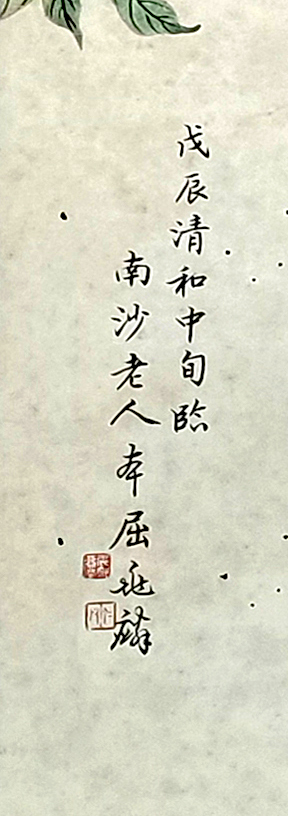 戊辰清和中旬臨
南沙老人本屈兆麟